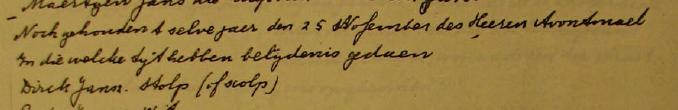 - Maertyen Jans die
Noch gehouden t selve jaer den 25 November des Heeren Avontmael
In die welche tyt hebben belydenis gedaen
Dirck Jansz. Stolp (of scolp)